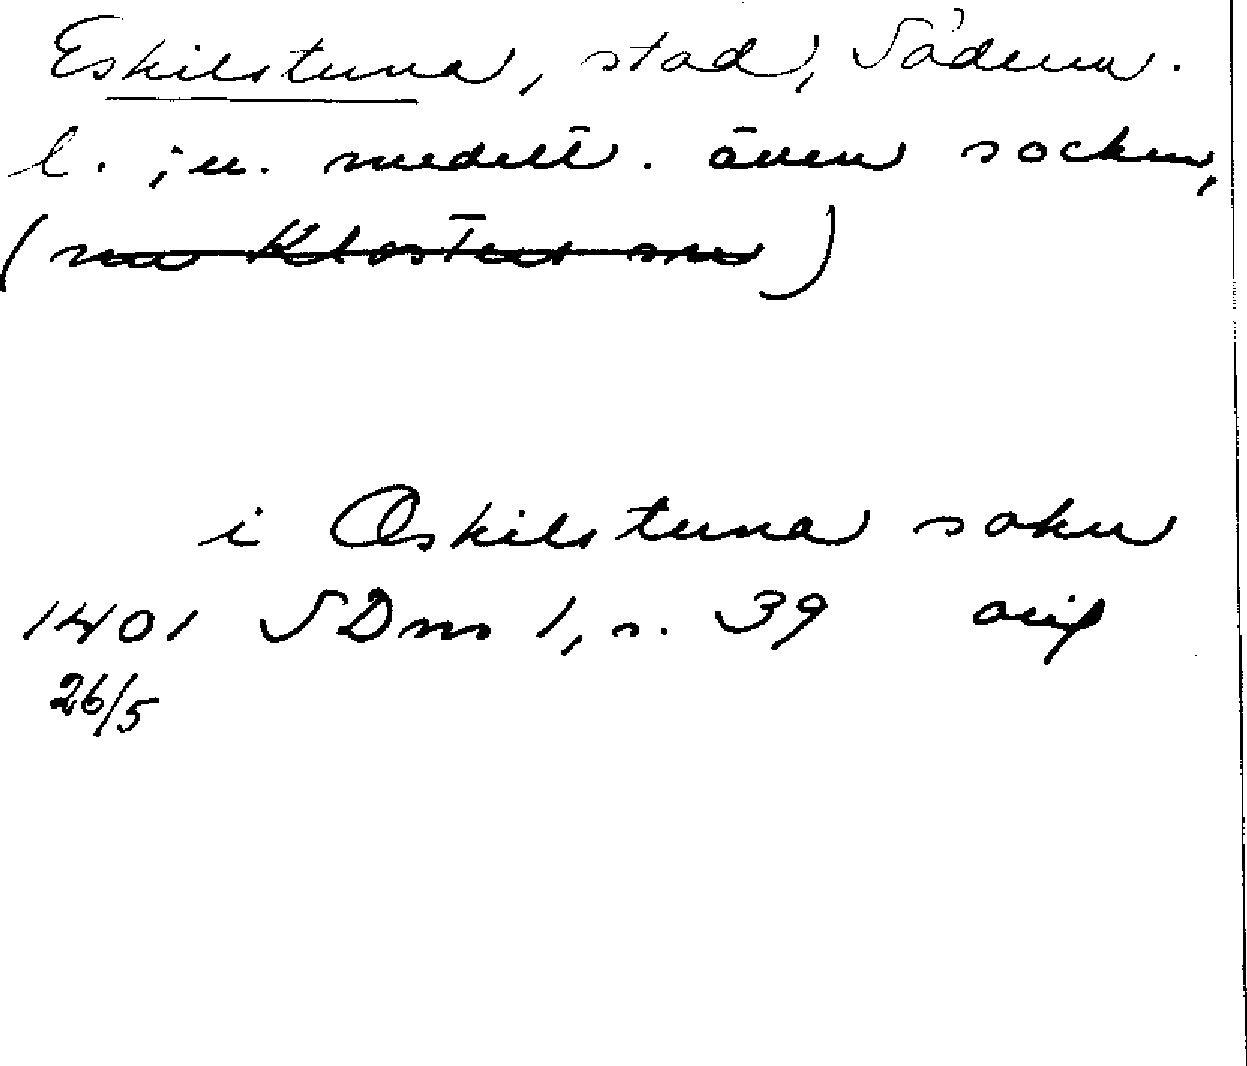 Eskilstuna, stad, Söderm.
l. ; u. medelt. även socken,
(nu Klosters sn)
i Øskilstuna sokn
1401 SDns 1, s. 39 orig
26/5